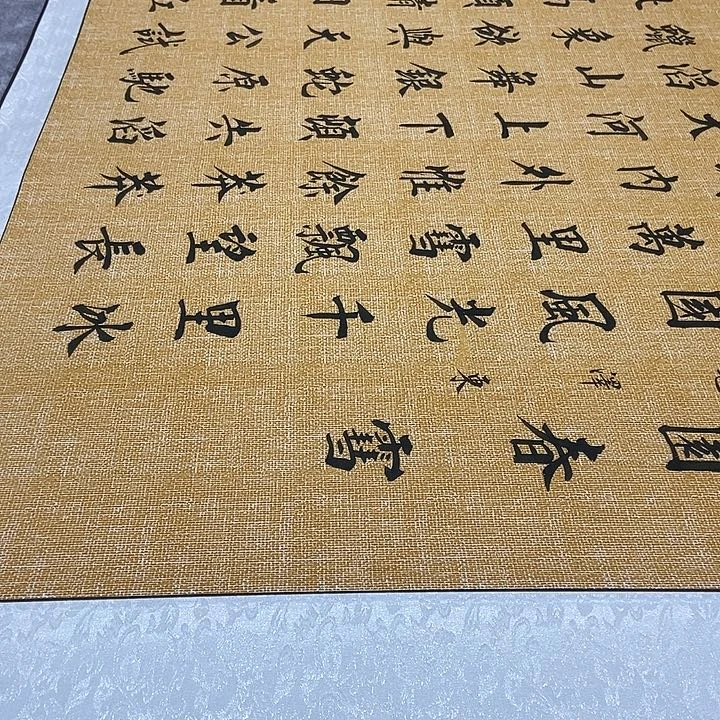 園春 雪
澤東
國風光千里冰
萬里雪飄望長
內外惟餘莽莽
大河上下頓失滔
滔山舞銀蛇原馳
蠟象欲與天公試